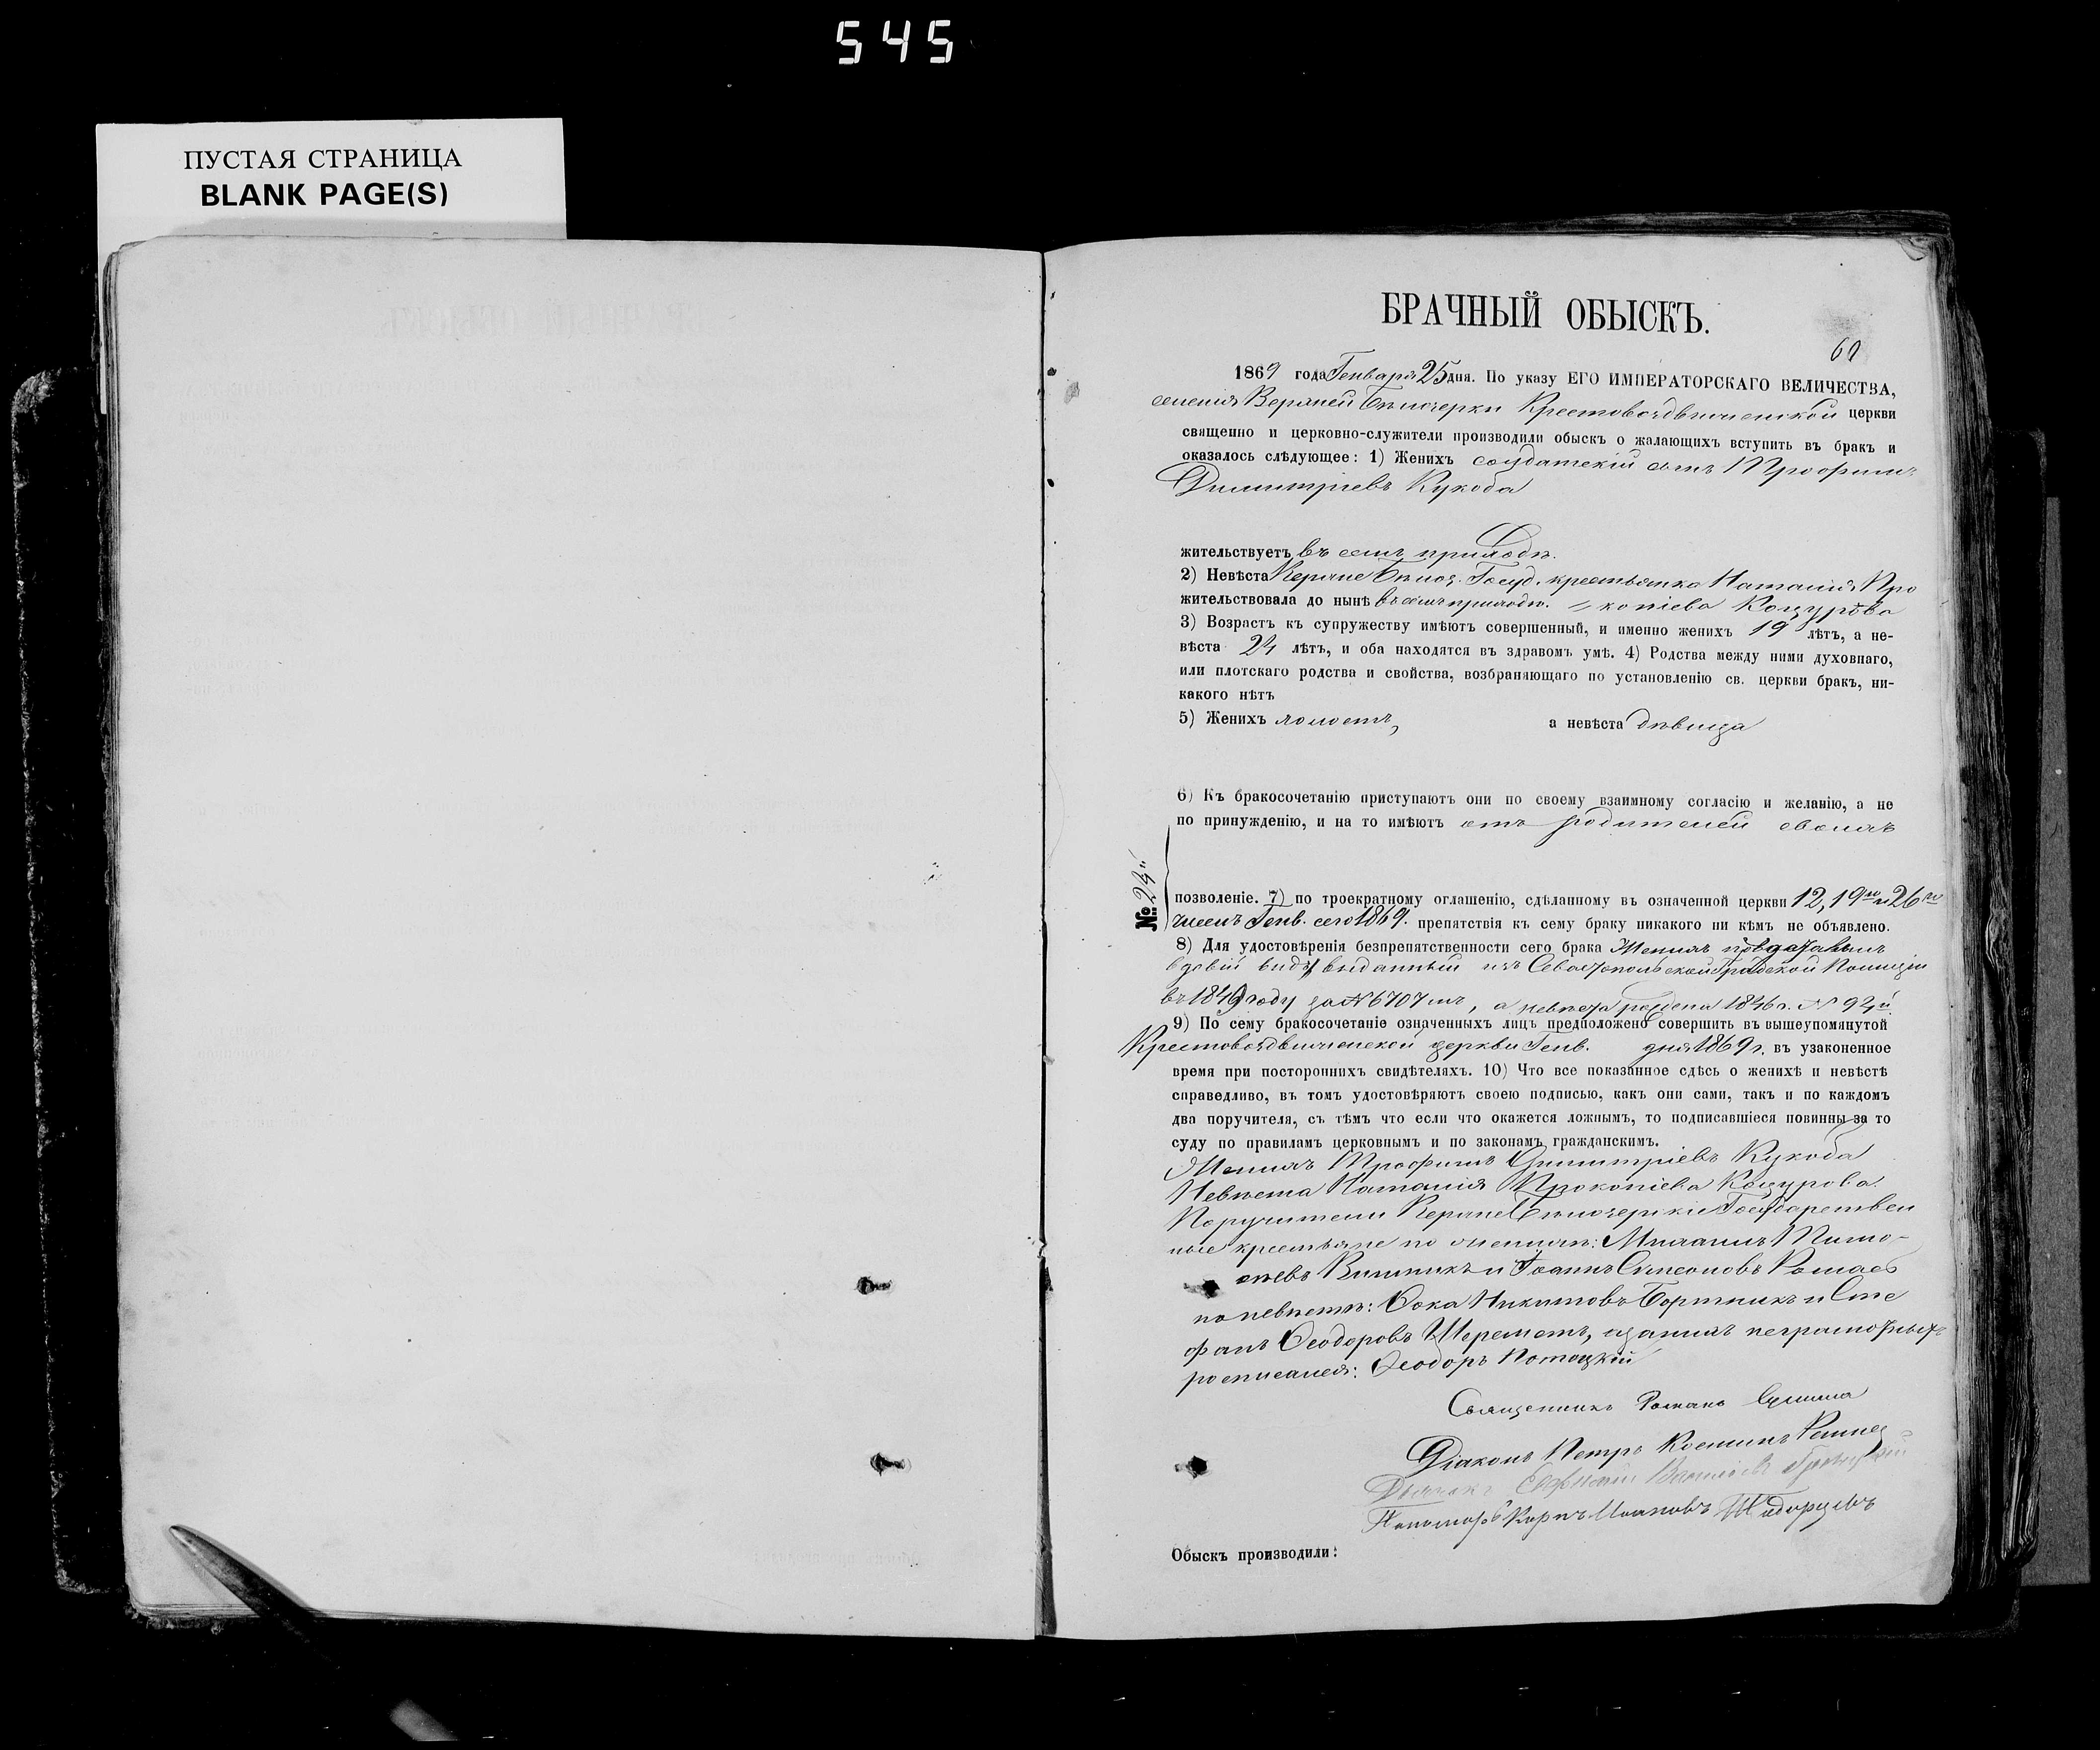 545
ПУСТАЯ СТРАНИЦА
BLANK PAGE(S)
БРАЧНЫЙ ОБЫСКЪ.
60
1869 года Генваря 25 дня. По указу ЕГО ИМПЕРАТОРСКАГО ВЕЛИЧЕСТВА,
селенія Верхней Бѣлозерки Крестовоздвиженской церкви
священно и церковно-служители производили обыскъ о жалающихъ вступить въ бракъ и
оказалось слѣдующее: 1) Женихъ солдатскій сынъ Трофимъ
Димитріевъ Кукоба
жительствуетъ въ семъ приходѣ.
2) Невѣста Верхне Бѣлоз. Госуд. крестьянка Наталія Про
жительствовала до нынѣ въ семъ приходѣ. = копіева Коцурова
3) Возрастъ къ супружеству имѣютъ совершенный, и именно женихъ 19 лѣтъ, а не-
вѣста 24 лѣтъ, и оба находятся въ здравомъ умѣ. 4) Родства между ними духовнаго,
или плотскаго родства и свойства, возбраняющаго по установленію св. церкви бракъ, ни-
какого нѣтъ
5) Женихъ холостъ, а невѣста дѣвица
6) Къ бракосочетанію приступаютъ они по своему взаимному согласію и желанію, а не
по принужденію, и на то имѣютъ отъ родителей своихъ
№ 24
позволеніе. 7) по троекратному оглашенію, сдѣланному въ означенной церкви 12, 19го и 26го
чиселъ Генв. сего 1869. препятствія къ сему браку никакого ни кѣмъ не объявлено.
8) Для удостовѣренія безпрепятственности сего брака Женихъ
вдовій видъ выданный изъ Севастопольской Градской Полиціи
въ 1849 году за № 6707мъ, а невѣста рождена 1846 г. № 94й.
9) По сему бракосочетаніе означенныхъ лицъ предположено совершить въ вышеупомянутой
Крестовоздвиженской церкви Генв. дня 1869 г. въ узаконенное
время при постороннихъ свидѣтеляхъ. 10) Что все показанное сдѣсь о женихѣ и невѣстѣ
справедливо, въ томъ удостовѣряютъ своею подписью, какъ они сами, такъ и по каждомъ
два поручителя, съ тѣмъ что если что окажется ложнымъ, то подписавшіеся повинны за то
суду по правиламъ церковнымъ и по законамъ гражданскимъ.
Женихъ Трофимъ Димитріевъ Кукоба
Невѣста Наталія Прокопіева Коцурова.
Поручители Верхне Бѣлозерскіе Государствен
ные крестьяне по женихѣ: Михаилъ Тимо-
ѳѣевъ и Іоаннъ Симеоновъ
по невѣстѣ: Ѳока Никитовъ Бортникъ и Сте
фанъ Ѳеодоровъ Шереметъ, а за нихъ неграмотныхъ
росписался: Ѳеодоръ Потоцкій
Священникъ Романъ
Діаконъ Петръ Косминъ
Дьячекъ
Пономарь Карпъ Ивановъ
Обыскъ производили: